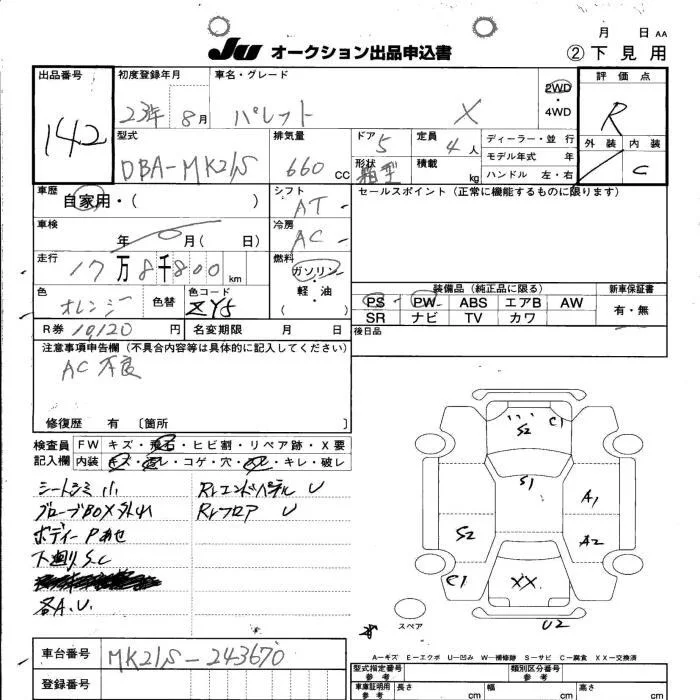 月 日 AA
JU オークション出品申込書 ② 下 見 用
出品番号 初度登録年月 車名・グレード 2WD ・ 4WD 評 価 点
142 23年 8月 パレット X R
型式 排気量 ドア 5 定員 4人 ディーラー・並 行 外 装 内 装
DBA-MK21S 660 CC 形状 箱型 積載 kg モデル年式 年 C
ハンドル 左・右
車歴 シフト セールスポイント(正常に機能するものに限ります)
自家用・( ) AT
車検 冷房
年 月( 日) AC
走行 燃料
17万8千800 km ガソリン・
軽・油
( )
色 色替 色コード
オレンジー ZY5
装備品(純正品に限る) 新車保証書
PS PW ABS エアB AW 有・無
SR ナビ TV カワ
R券 10,120 円 名変期限 月 日 後日品
注意事項申告欄(不具合内容等は具体的に記入してください)
AC 不良
修復歴 有 〔箇所 〕
検査員 FW キズ・飛石・ヒビ割・リペア跡・X要
記入欄 内装 キズ・ ・コゲ・穴・ ・キレ・破レ
シートシミ小 Rrエンドパネル U
グローブBOX外れ Rrフロア U
ボディー Pあせ
下廻り S.C
各A.U.
S2 C1
S1 A1
S2 A2
C1 XX
U2
スペア
A―キズ E―エクボ U―凹み W―補修跡 S―サビ C―腐食 XX―交換済
車台番号 MK21S-243670
登録番号
型式指定番号 参考 類別区分番号 参考
車庫証明用 参考 長さ cm 幅 cm 高さ cm